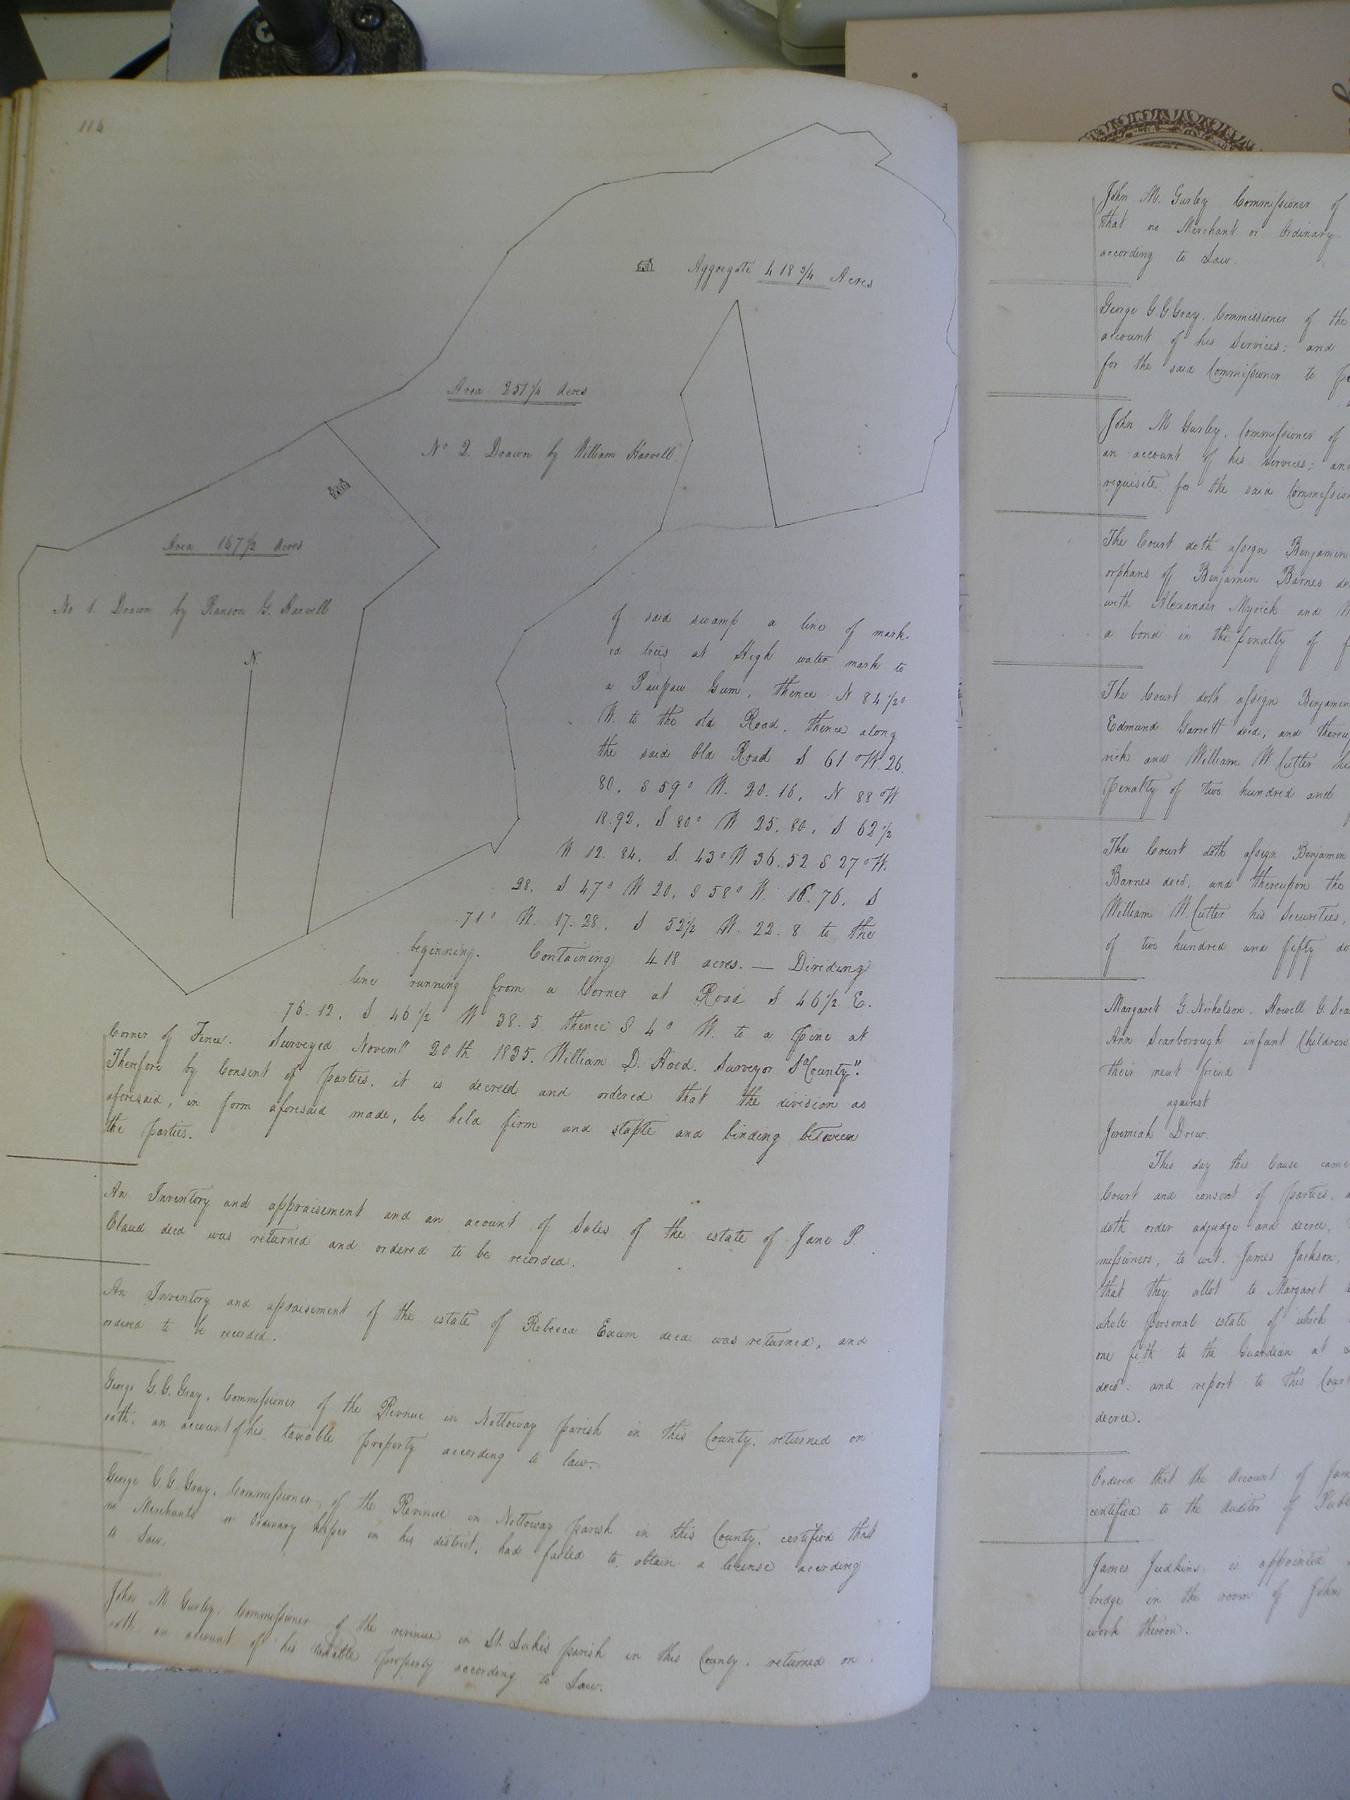 114
Aggregate 418 3/4 Acres
Area 251 1/4 acres
No 2. Drawn by William Harvell.
Area 167 1/2 acres
No 1. Drawn by Ranson G. Harvell
N
of said swamp a line of mark-
ed trees at High water mark to
a Paupaw Gum, thence N 84 1/2°
W. to the old Road, thence along
the said Old Road S 61° W. 26.
80, S 59° W. 20.16, N 88° W
18.92, S 80° W 25.80, S 62 1/2
W 12.84, S. 43° W 36.52 S 27° W.
28, S 47° W 20, S 58° W. 16.76, S
71° W. 17.28, S 52 1/2 W. 22.8 to the
beginning. Containing 418 acres. — Dividing
line running from a Corner at Road S 46 1/2 E.
76.12, S 46 1/2 W 38.5 thence S 4° W. to a Pine at
Corner of Fence. Surveyed Novemr 20th 1835. William D. Hood. Surveyor So County".
Therefore by Consent of Parties, it is decreed and ordered that the division as
aforesaid, in form aforesaid made, be held firm and stable and binding between
the parties.
An Inventory and appraisement and an account of Sales of the estate of Jane P.
Claud decd was returned and ordered to be recorded.
An Inventory and appraisement of the estate of Rebecca Exum decd was returned, and
ordered to be recorded.
George G. G. Gray, Commissioner of the Revenue in Nottoway parish in this County, returned on
oath, an account of his taxable property according to law.
George G. G. Gray, Commissioner of the Revenue in Nottoway parish in this County, certified that
no Merchants or Ordinary keeper in his district, had failed to obtain a license according
to Law.
John M Gurley, Commissioner of the revenue in St. Lukes parish in this County, returned on
oath an account of his taxable property according to Law.
John M. Gurley Commissioner of
that no Merchant or Ordinary
according to Law.
George G G Gray, Commissioner of the
account of his Services; and
for the said Commissioner to
John M Gurley, Commissioner of
an account of his Services; and
requisite for the said Commission
The Court doth assign Benjamin
orphans of Benjamin Barnes de
with Alexander Myrick and
a bond in the penalty of
The Court doth assign Benjamin
Edmund Garrett decd, and thereu
rick and William W. Cutler
Penalty of two hundred and
The Court doth assign Benjamin
Barnes decd, and thereupon the
William W. Cutler his Securities,
of two hundred and fifty do
Margaret G. Nicholson, Howell G. Sca
Ann Scarborough infant Children
their next friend
against
Jeremiah Drew.
This day this Cause came
Court and consent of parties,
doth order adjudge and decree,
missioners, to wit. James Jackson,
that they allot to Margaret
whole personal estate of which
one fifth to the Guardian at
decd: and report to this Court
decree.
Ordered that the Account of Jam
certified to the Auditor of Publ
James Judkins, is appointed
bridge in the room of John
work thereon.